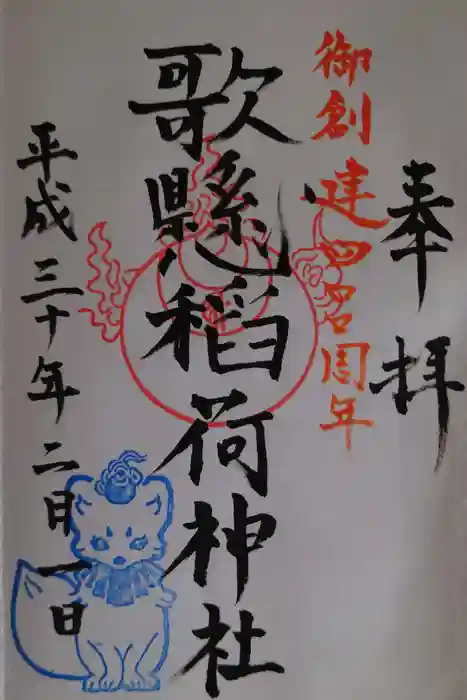 奉拝
御創建四百周年
歌懸稲荷神社
平成三十年二月一日